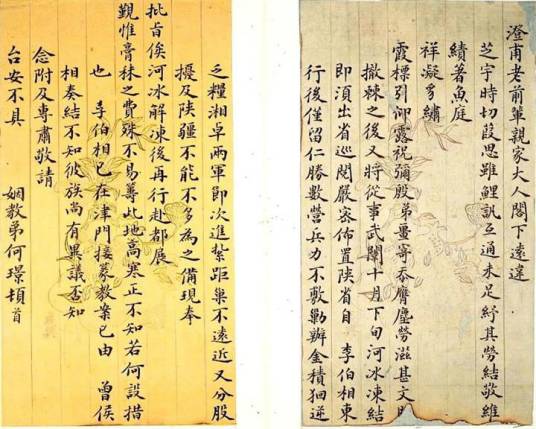 澄甫老前輩親家大人閣下遠違
芝宇時切葭思雖鯉訊互通未足紓其勞結敬維
績著魚庭
祥凝多繡
霞標引仰露祝彌殷弟量寄忝膺塵勞滋甚文闈
撤棘之後又將從事武闈十月下旬河冰凍結
即須出省巡閱嚴密佈置陝省自 李伯相東
行後僅留仁勝數營兵力不敷勦辦金積狪逆
乏糧湘卓兩軍即次進紮距巢不遠近又分股
擾及陝疆不能不多為之備現奉
批旨俟河冰解凍後再行赴都展
覲惟膏秣之費殊不易籌此地高寒正不知若何設措
也 李伯相已在津門接篆教案已由 曾侯
相奏結不知彼族尚有異議否知
念附及專肅敬請
台安不具 姻教弟何璟頓首